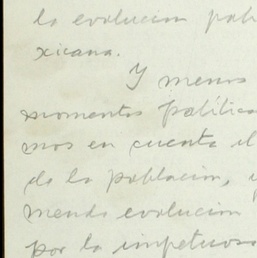 la evolucion pol
xicana.
Y menos
momentos politico
mos en cuenta el
de la poblacion,
menda evolucion
por la impetuos